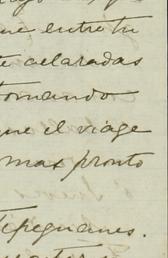 que entre tu
aclaradas
tomando
que el viage
mas pronto
Tepeguanes.